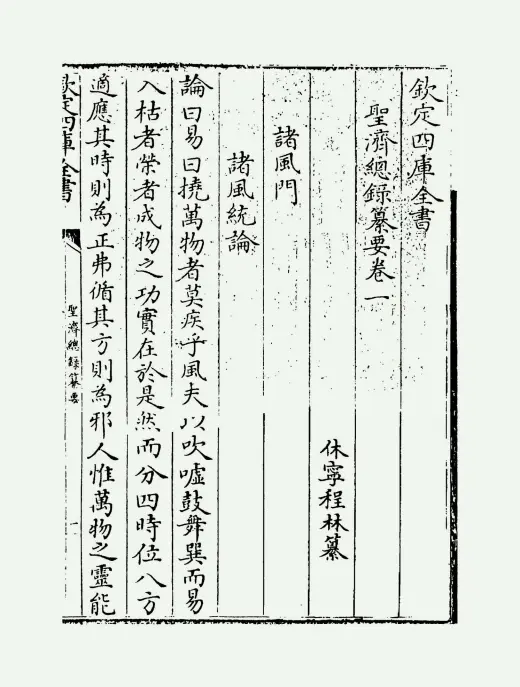 欽定四庫全書
聖濟總錄纂要卷一
休寧程林纂
諸風門
諸風統論
論曰易曰撓萬物者莫疾乎風夫以吹噓鼓舞巽而易
入枯者榮者成物之功實在於是然而分四時位八方
適應其時則為正弗循其方則為邪人惟萬物之靈能
欽定四庫全書
聖濟總錄纂要
一